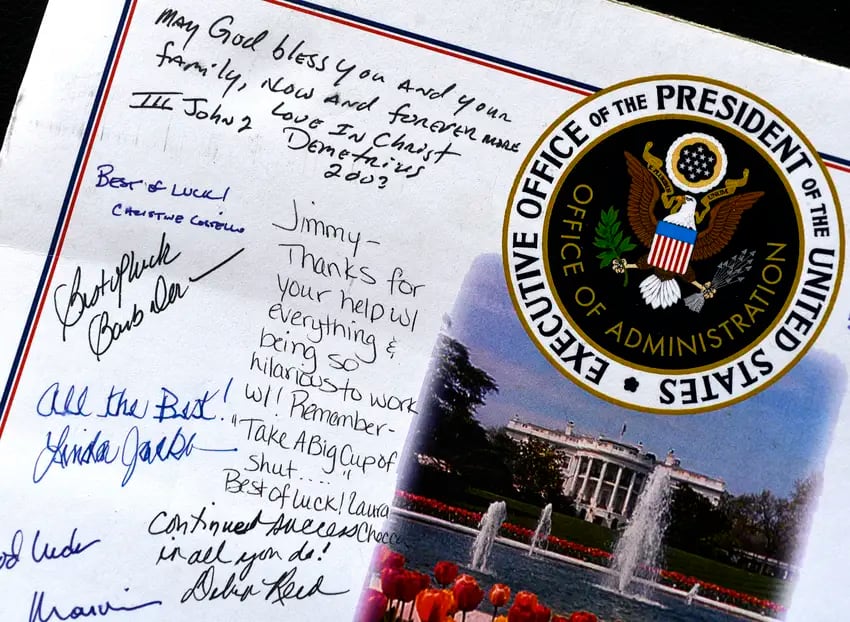 May God bless you and your
family, now and forever more
Love in Christ
III John 2
Demetrius
2002
Best of Luck!
Christine Costello
Best of luck
Barb
Jimmy-
Thanks for
your help w/
everything &
being so
hilarious to work
w/! Remember-
"Take A Big Cup of
shut...."
Best of luck! Laura
All the Best!
Linda
Continued success
in all you do!
Debra Reed
Luck
Marvin
EXECUTIVE OFFICE OF THE PRESIDENT OF THE UNITED STATES
OFFICE OF ADMINISTRATION